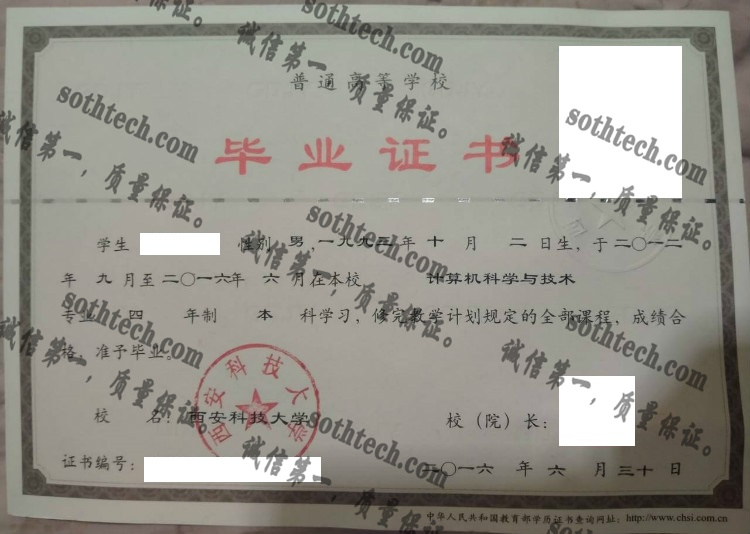 普通高等学校
毕业证书
学生 性别 男，一九九三年 十 月 二 日生，于二〇一二
年 九 月至二〇一六年 六 月在本校 计算机科学与技术
专业 四 年制 本 科学习，修完教学计划规定的全部课程，成绩合
格，准予毕业。
校 名：西安科技大学 校（院）长：
证书编号： 二〇一六 年 六 月三十日
中华人民共和国教育部学历证书查询网址：http://www.chsi.com.cn
西安科技大学
sothtech.com
诚信第一，质量保证。
sothtech.com
诚信第一，质量保证。
sothtech.com
诚信第一，质量保证。
sothtech.com
诚信第一，质量保证。
sothtech.com
诚信第一，质量保证。
sothtech.com
诚信第一，质量保证。
sothtech.com
诚信第一，质量保证。